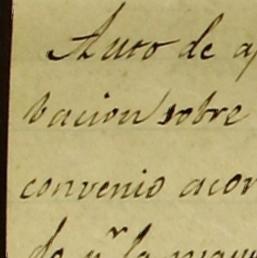 Auto de ap
bacion sobre
convenio acor
do pr. la mayo